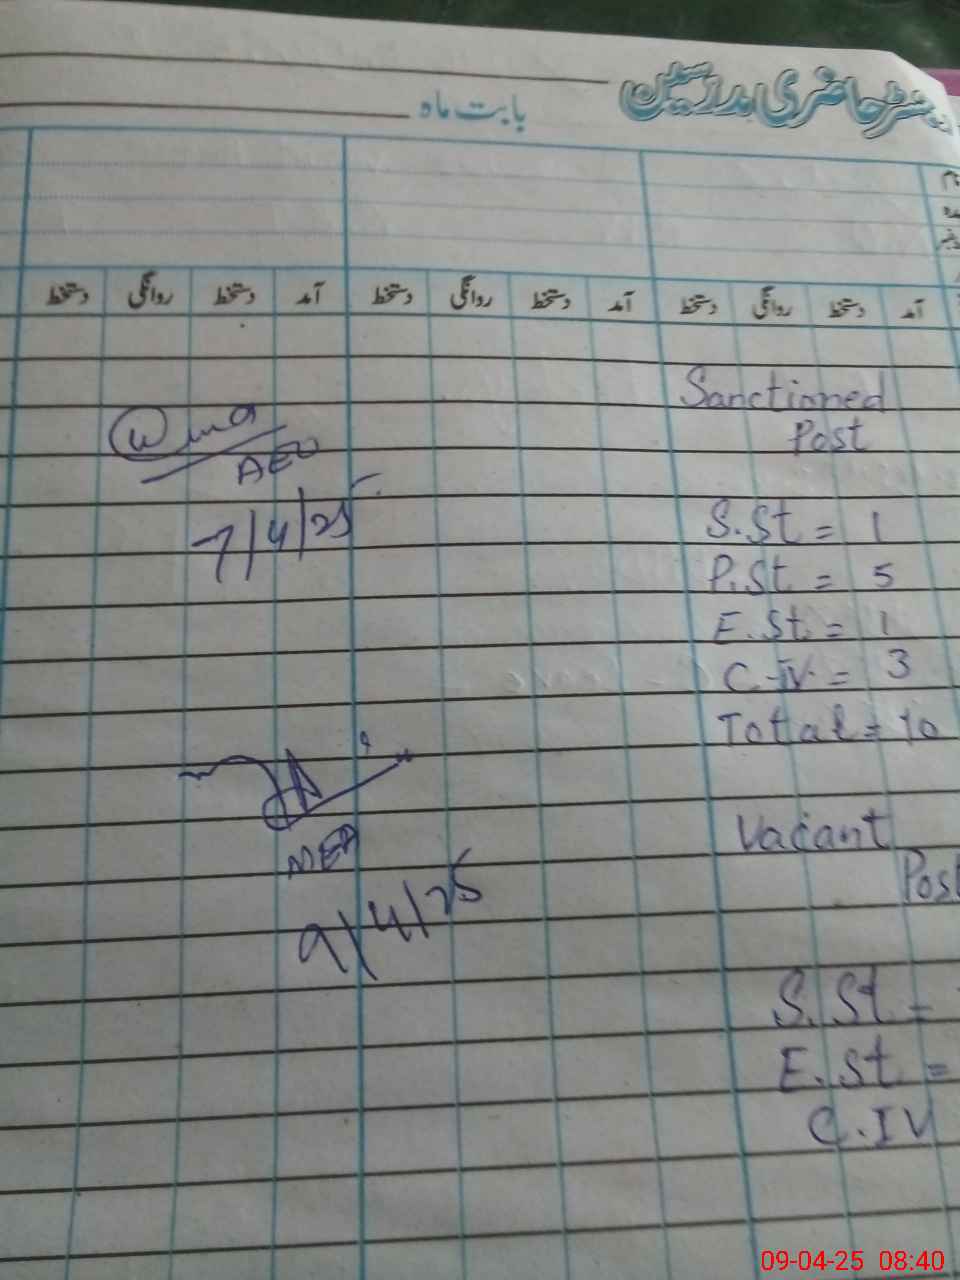 رجسٹر حاضری مدرسین
بابت ماہ
آمد دستخط روانگی دستخط آمد دستخط روانگی دستخط آمد دستخط روانگی دستخط
Sanctioned
Post
S.St = 1
P.St = 5
E.St. = 1
C-IV. = 3
Total = 10
AEO
7/4/25
MEA
9/4/25
Vacant
Post
S.St =
E.St =
C.IV
09-04-25 08:40